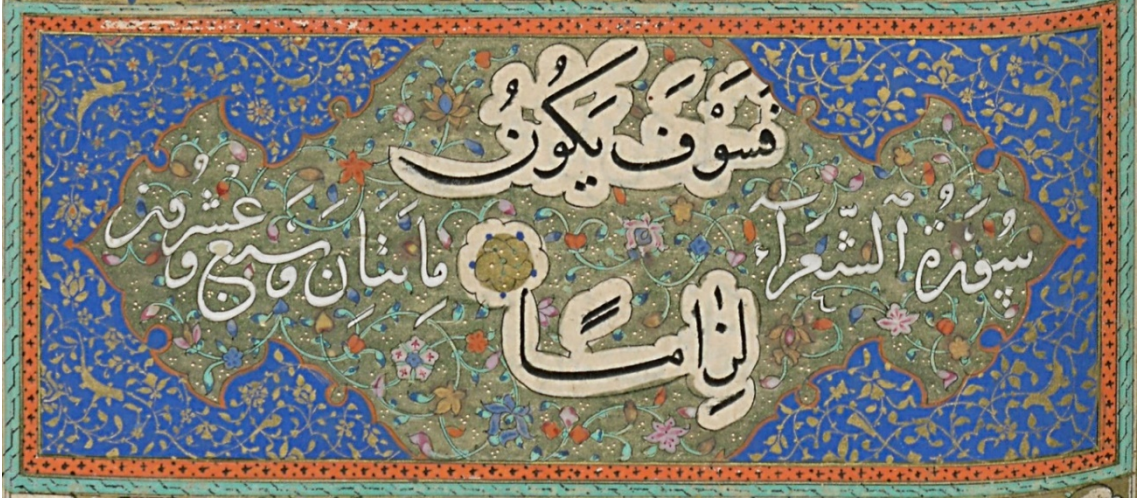 فَسَوْفَ يَكُونُ
لِزَامًا
سُورَةُ الشُّعَرَآءِ مِائَتَانِ وَسَبْعٌ وَعِشْرُونَ